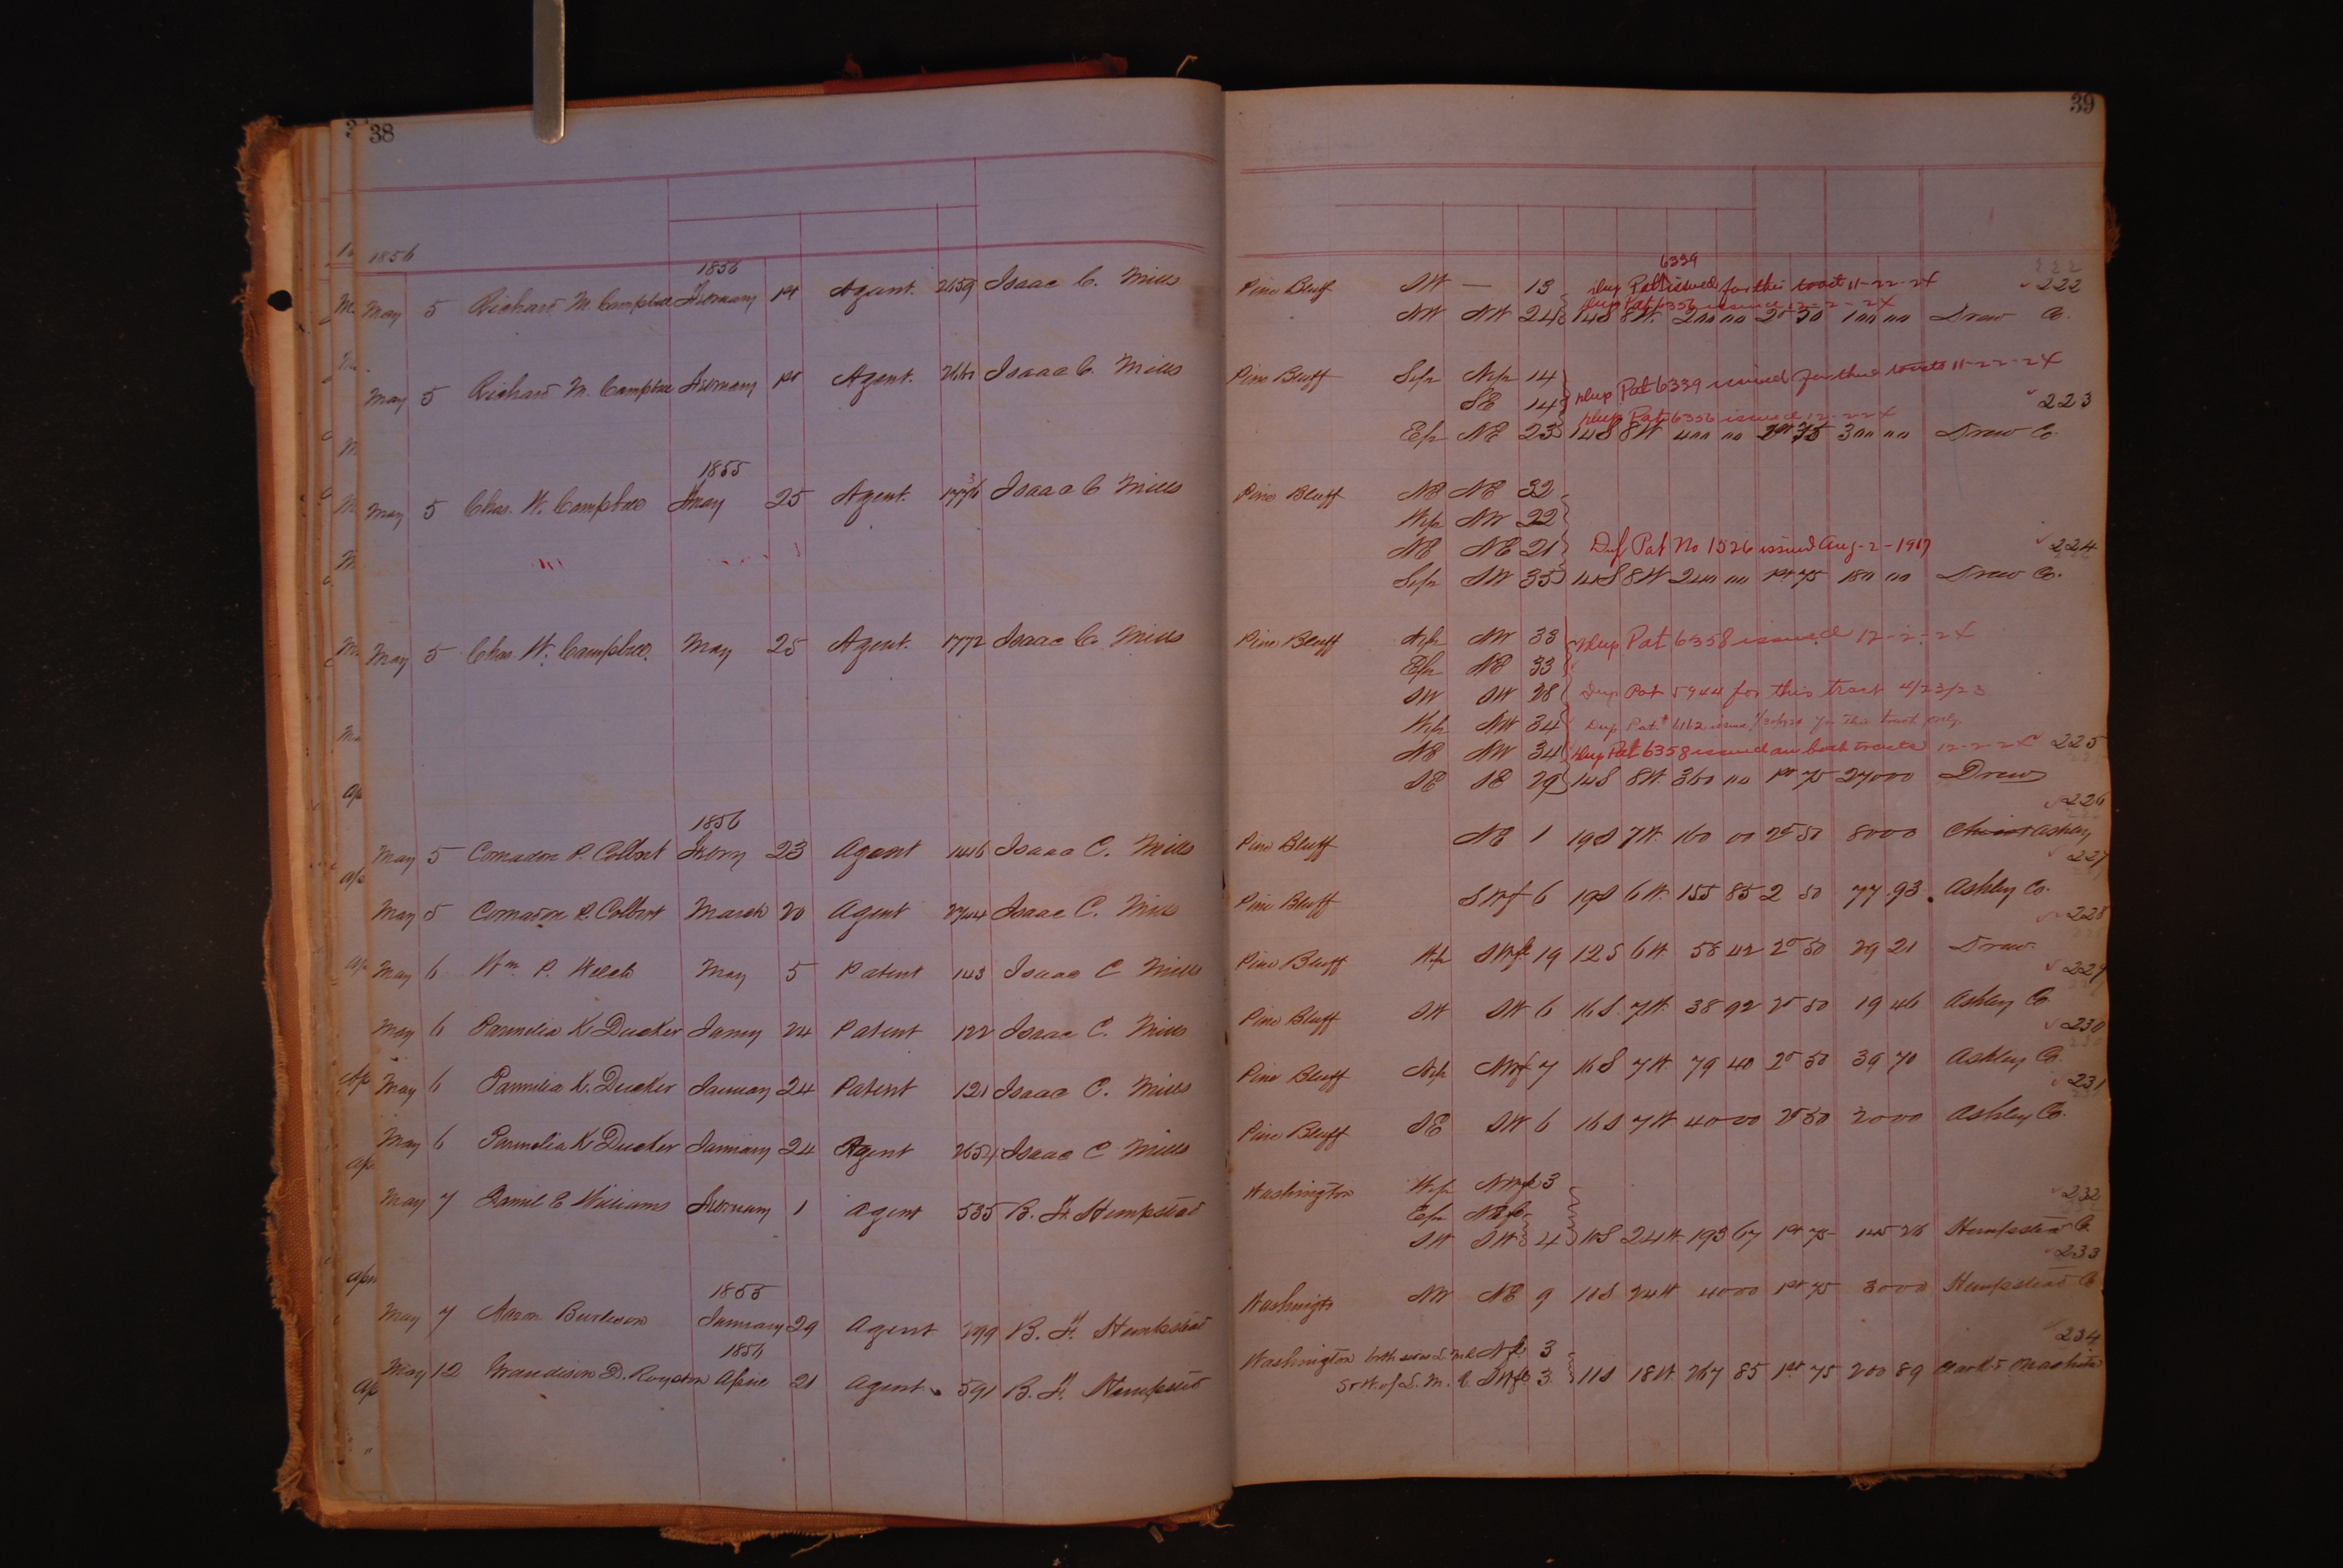 38
1856
1856
May 5 Richard M. Campbell February 1st Agent. 2659 Isaac C. Mills
May 5 Richard M. Campbell February 1st Agent. Isaac C. Mills
1855
May 5 Chas. W. Campbell May 25 Agent. Isaac C Mills
May 5 Chas. W. Campbell. May 25 Agent. 1772 Isaac C. Mills
1856
May 5 P. Colbert 23 Agent 1446 Isaac C. Mills
May 5 P. Colbert March 20 Agent 2744 Isaac C. Mills
May 6 Wm. P. Welch May 5 Patent 143 Isaac C Mills
May 6 Parmelia K. Ducker Jany 24 Patent 122 Isaac C. Mills
May 6 Parmelia K. Ducker January 24 Patent 121 Isaac C. Mills
May 6 Parmelia K. Ducker January 24 Agent 2654 Isaac C Mills
May 7 Daniel E Williams February 1 agent 535 B. F. Hempstead
1855
May 7 Aaron Burleson January 29 Agent 299 B. F. Hempstead
1856
May 12 Grandison D. Royston Aprie 21 Agent 591 B. F. Hempstead
39
6339
Pine Bluff SW — 13 Dup Pat issued for this tract 11-22-24
222
Dup Pat 6356 issued 12-2-24
NW NW 24 14S 8W. 200 00 25 50 100 00 Drew Co.
Pine Bluff S1/2 N1/2 14 Dup Pat 6339 issued for these tracts 11-22-24
SE 14
223
Dup Pat 6356 issued 12-2-24
E1/2 NE 23 14S 8W 400 00 75 300 00 Drew Co.
Pine Bluff NE NE 32
W1/2 NW 22
NE NE 21 Dup Pat No 1526 issued Aug-2-1917
224
S1/2 SW 35 14S 8W 240 00 1st 75 180 00 Drew Co.
Pine Bluff N1/2 NW 33 Dup Pat 6358 issued 12-2-24
E1/2 NE 33
SW SW 28 Dup Pat 5944 for this tract 4/23/23
W1/2 NW 34 Dup Pat # 6162 for this tract only.
NE NW 34 Dup Pat 6358 issued on both tracts 12-2-24 225
SE SE 29 14S 8W. 360 00 1st 75 27000 Drew
226
Pine Bluff NE 1 19S 7W. 160 00 25 50 8000 Chicot Ashley
227
Pine Bluff S Wf 6 19S 6W. 155 85 2 50 77 93. Ashley Co.
228
Pine Bluff W1/2 SWf 19 12S 6W 58 42 25 50 29 21 Drew.
229
Pine Bluff SW SW 6 16S. 7W. 38 92 25 50 19 46 Ashley Co
230
Pine Bluff N1/2 NWf 7 16S 7W. 79 40 25 50 39 70 Ashley Co.
231
Pine Bluff SE SW 6 16S 7W 4000 25 50 2000 Ashley Co.
Washington W1/2 NWf 3
232
E1/2 NEf
SW SW 4 10S 24W. 193 67 1st 75 145 26 Hempstead Co
233
Washingto NW NE 9 11S 24W 4000 1st 75 3000 Hempstead Co
234
Washington both sides L. M. R Nf 3
S & W. of L. M. R. SWf 3 11S 18W. 267 85 1st 75 200 89 Clark & Ouachita